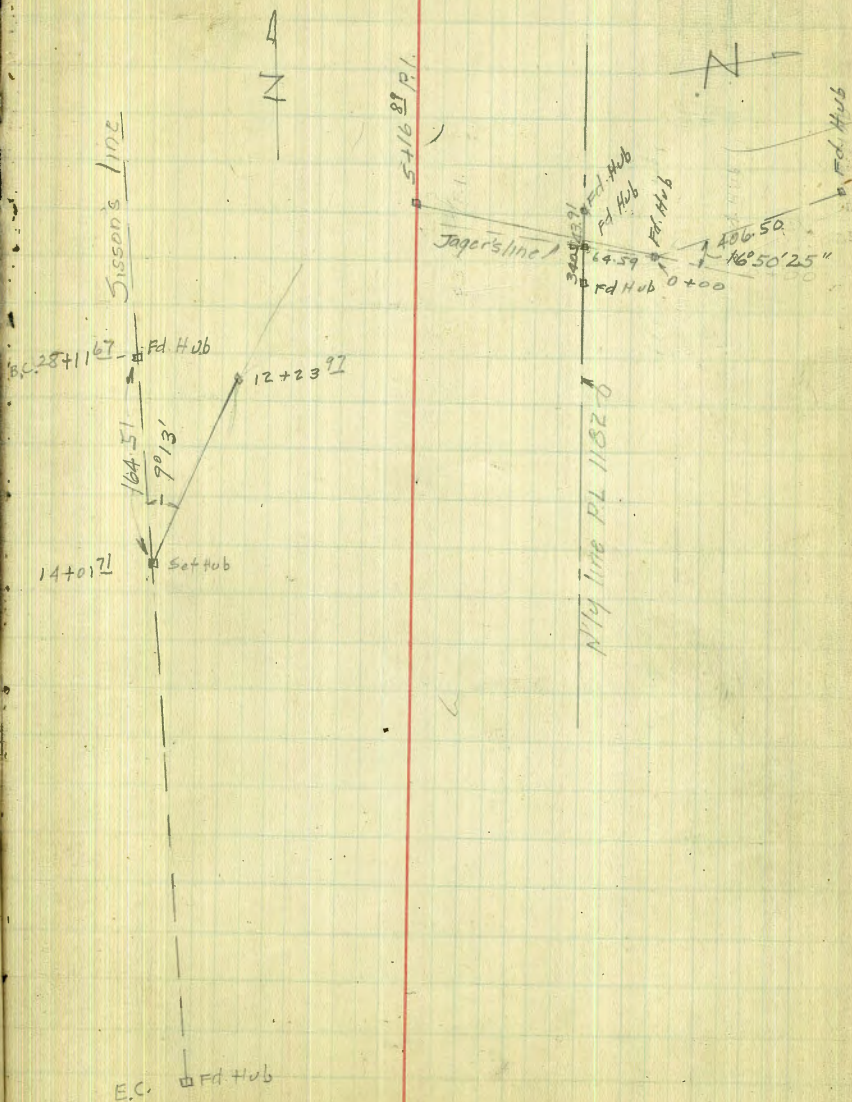 N
Sisson's line
B.C. 28+11 67
Fd. Hub
12+23 97
164.51
9°13'
14+01 71
Set Hub
E.C.
Fd. Hub
5+16 89 P.I.
N
Fd. Hub
Fd. Hub
Fd. Hub
Fd. Hub
Jager's line
64.59
406.50
16°50'25"
Fd Hub
0+00
N'ly line P.L. 1182